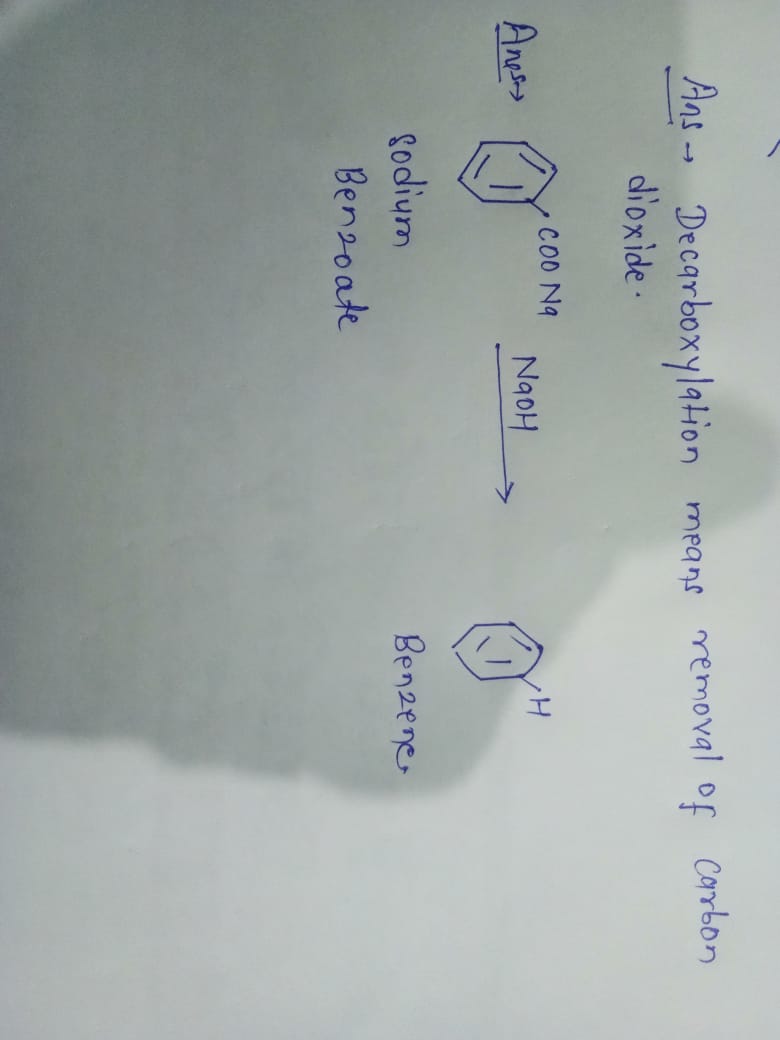 Ans → Decarboxylation means removal of carbon
dioxide.
Ans → COONa NaOH H
Sodium Benzene
Benzoate